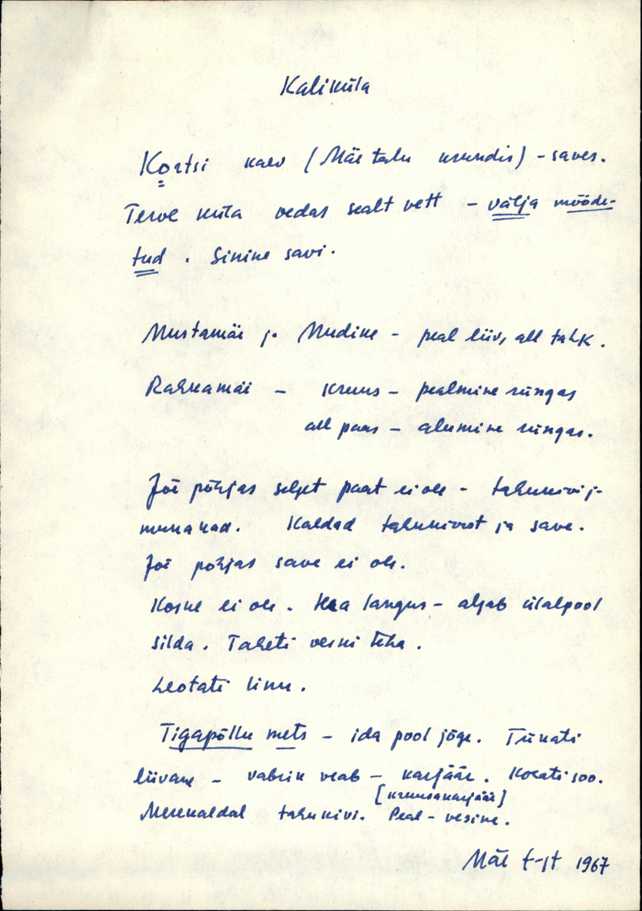 Kaliküla
Kortsi kaev (Mäe talu krundis) - saves.
Terve küla vedas sealt vett - välja mõõde-
tud. Sinine savi.
Mustamäe ja Mudike - peal liiv, all tahk.
Rahkamäe - kruus - pealmine rüngas
all paas - alumine rüngas.
Jõe põhjas selget paat ei ole - tahukivi j-
munakad. Kaldad tahukivist ja save.
Jõe põhjas save ei ole.
Koske ei ole. Hea langus - algab ülalpool
silda. Taheti veski teha.
Leotati linu.
Tigapõllu mets - ida pool jõge. Tükati
liivane - vabrik veab - karjäär. Korati soo.
[kruusakarjäär]
Merekaldal tahukivi. Peal - vesine.
Mäe t-st 1967